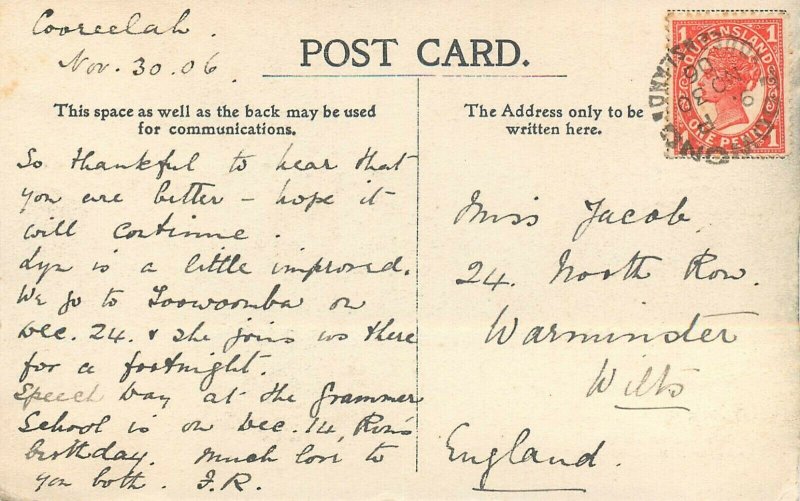 Cooreelah.
Nov. 30. 06
POST CARD.
This space as well as the back may be used
for communications.
The Address only to be
written here.
So thankful to hear that
you are better – hope it
will continue.
Lyn is a little improved.
We go to Toowoomba on
Dec. 24. & she joins us there
for a fortnight.
Speech Day at the Grammar
School is on Dec. 14, Ron's
birthday. Much love to
you both. J.R.
Miss Jacob
24. North Row.
Warminster
Wilts
England.
1 QUEENSLAND 1
ONE PENNY 1